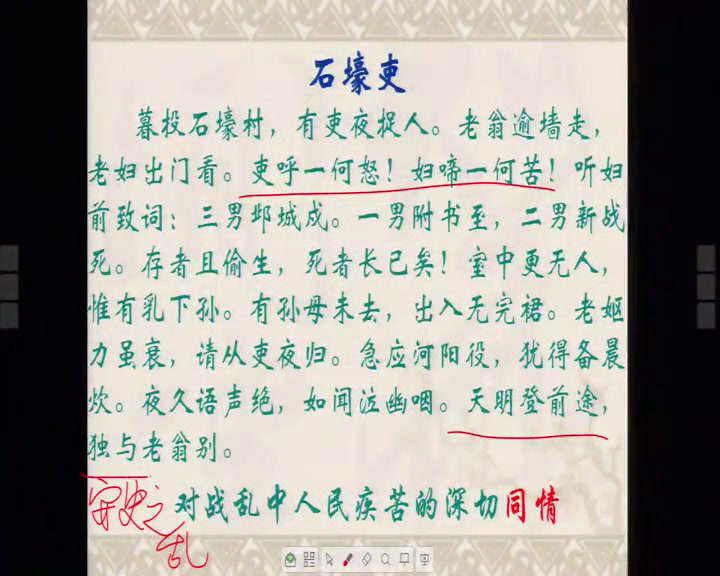 石壕吏
暮投石壕村，有吏夜捉人。老翁逾墙走，
老妇出门看。吏呼一何怒！妇啼一何苦！听妇
前致词：三男邺城戍。一男附书至，二男新战
死。存者且偷生，死者长已矣！室中更无人，
惟有乳下孙。有孙母未去，出入无完裙。老妪
力虽衰，请从吏夜归。急应河阳役，犹得备晨
炊。夜久语声绝，如闻泣幽咽。天明登前途，
独与老翁别。
安史之乱
对战乱中人民疾苦的深切同情